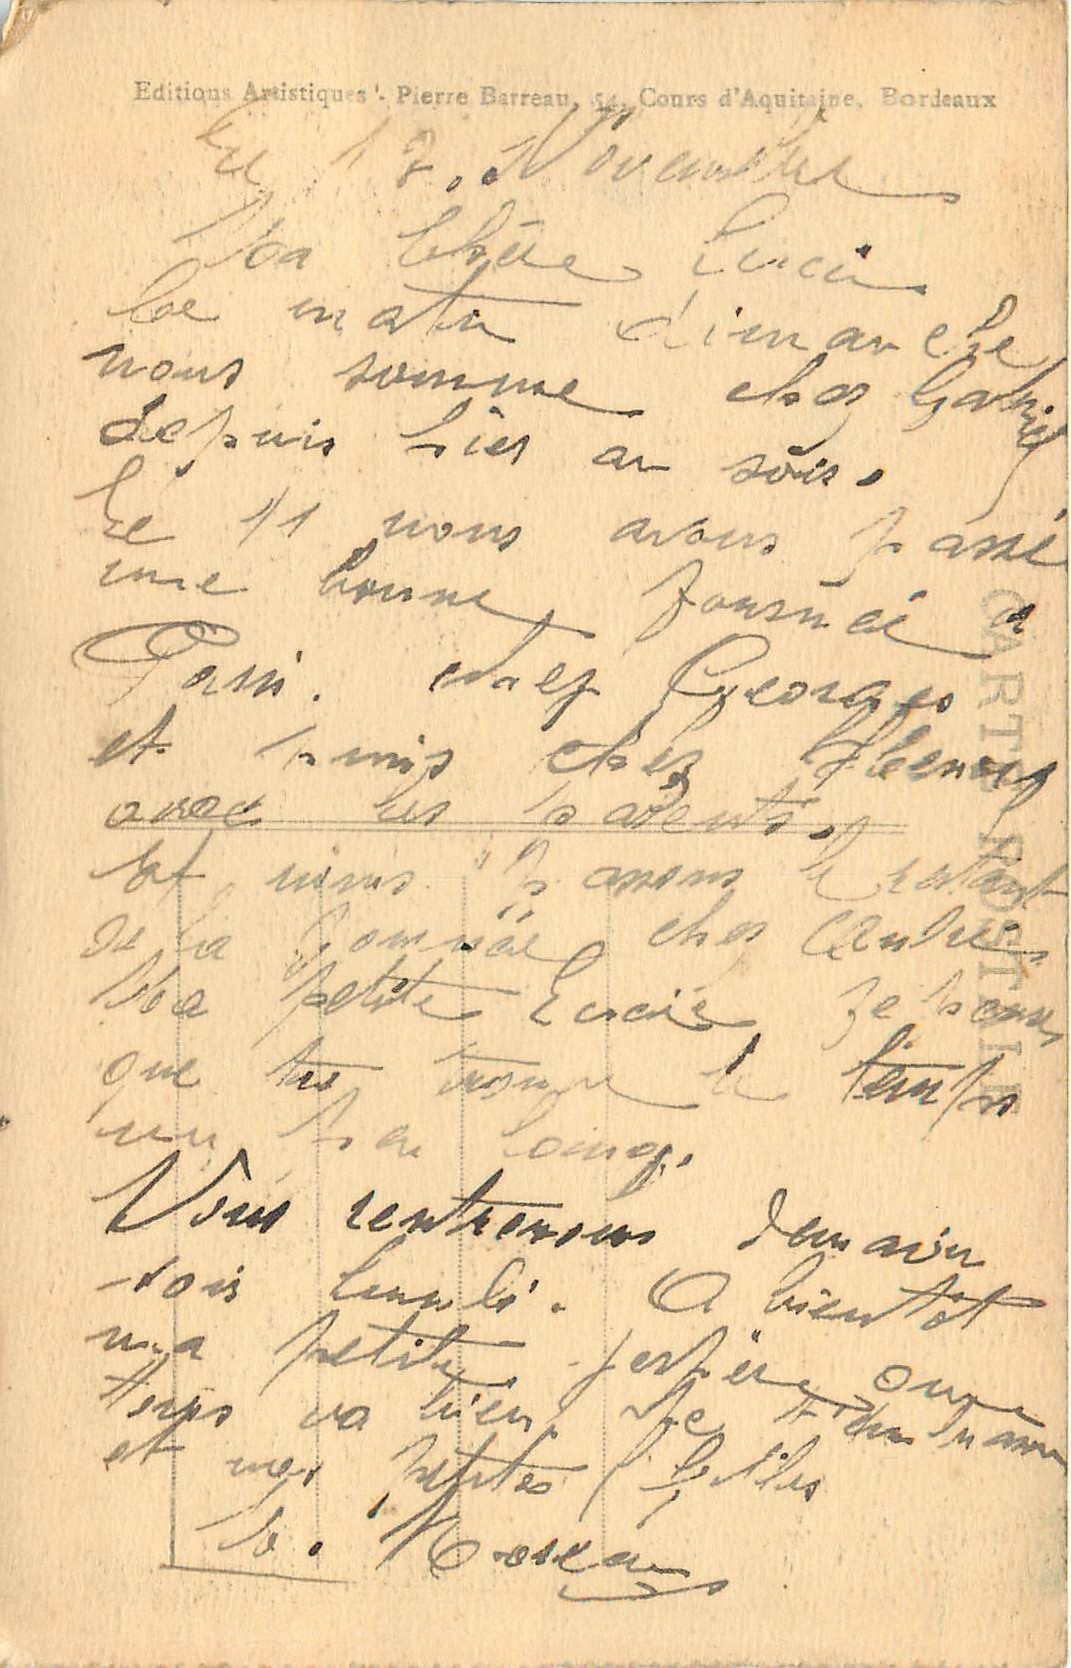 Editions Artistiques - Pierre Barreau, 54, Cours d'Aquitaine, Bordeaux
CARTE POSTALE
Le 12. Novembre
Ma Chère Lucie
Ce matin dimanche
nous somme chez Gabriel
depuis hier au soir.
Le 11 nous avons passé
une bonne journée à
Paris. chez Georges
et puis chez
avec les parents.
Et nous passons le restant
de la journée chez André
Ma petite Lucie je pense
que tu trouve le temps
un peu long.
Nous rentrerons demain
soir lundi. A bientôt
ma petite jespère que
tous va bien. Je t'embrasse
et mes petites filles
M. Moreau